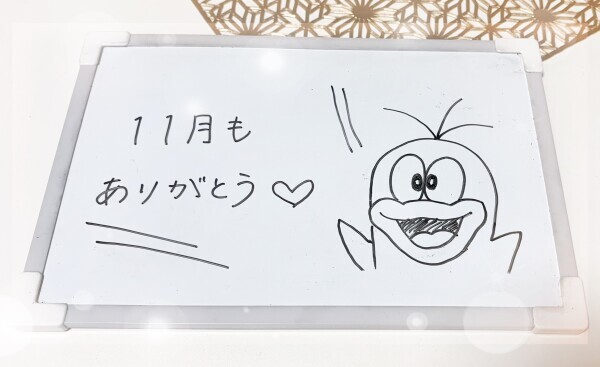 11月も
ありがとう♡